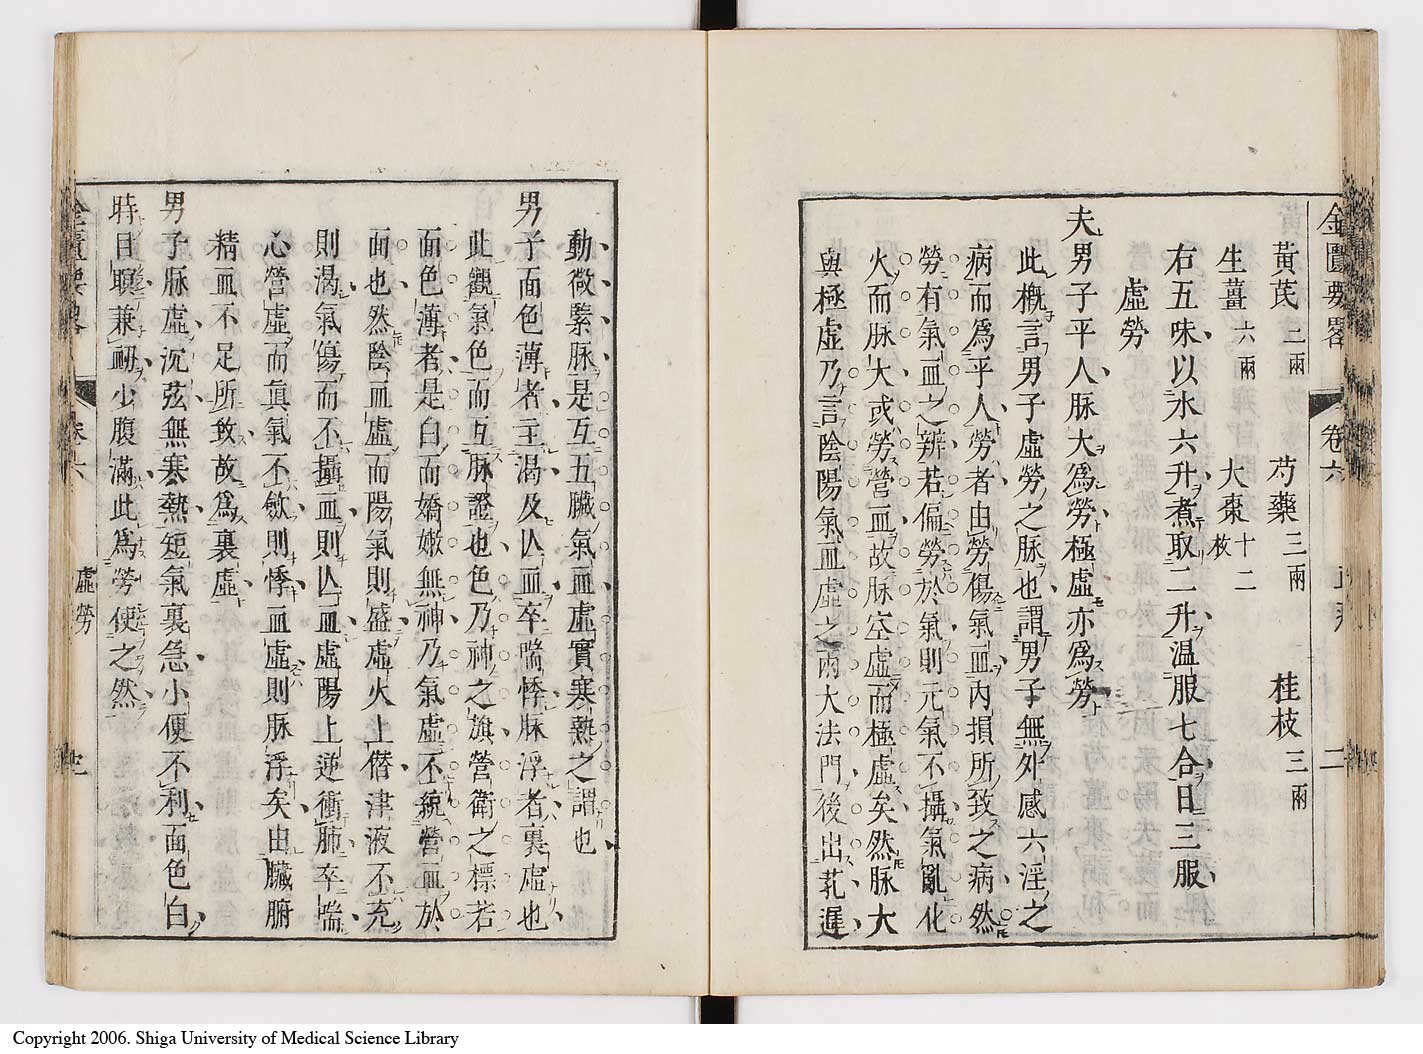 金匱要畧 卷六 二
黃芪三兩 芍藥三兩 桂枝三兩
生薑六兩 大棗十二枚
右五味以水六升煮取二升温服七合日三服
虛勞
夫男子平人脉大爲勞極虛亦爲勞
此槪言男子虛勞之脉也謂男子無外感六淫之
病而爲平人勞者由勞傷氣血內損所致之病然
勞有氣血之辨若偏勞於氣則元氣不攝氣亂化
火而脉大或勞營血故脉空虛而極虛矣然脉大
與極虛乃言陰陽氣血虛之兩大法門後出芤遲
動微緊脉是互五臟氣血虛實寒熱之謂也
男子面色薄者主渴及亾血卒喘悸脉浮者裏虛也
此觀氣色而互脉證也色乃神之旗營衛之標若
面色薄者是白而嬌嫩無神乃氣虛不統營血於
面也然陰血虛而陽氣則盛虛火上僭津液不充
則渴氣傷而不攝血則亾血虛陽上逆衝肺卒喘
心營虛而眞氣不斂則悸血虛則脉浮矣由臟腑
精血不足所致故爲裏虛
男子脉虛沉弦無寒熱短氣裏急小便不利面色白
時目瞑兼衂少腹滿此爲勞使之然
卷六 虛勞
Copyright 2006. Shiga University of Medical Science Library